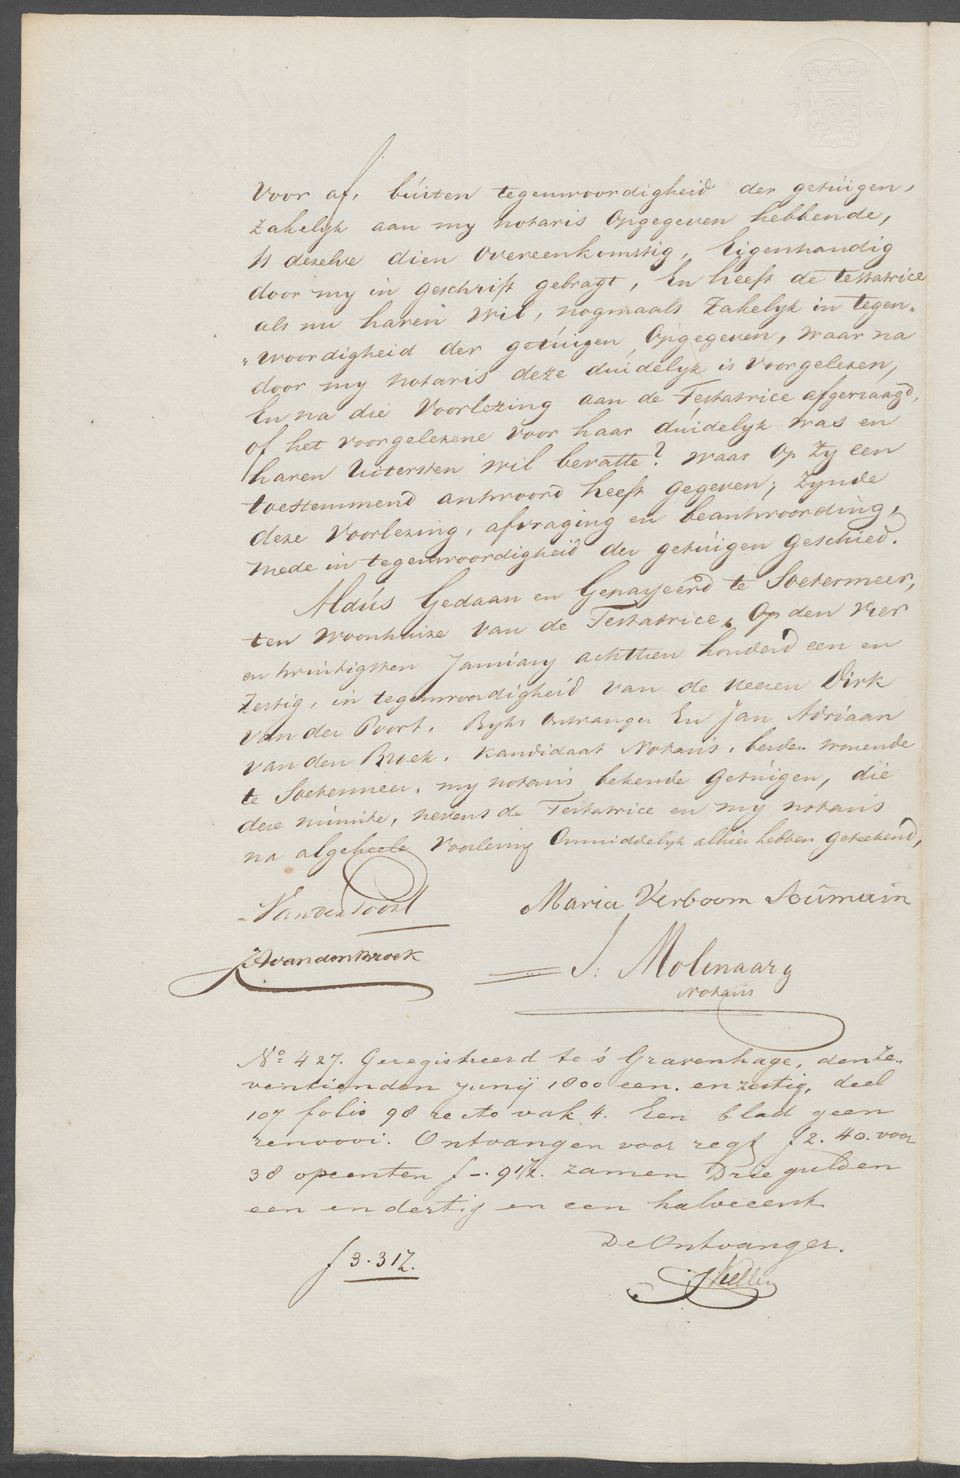 Voor af, buiten tegenwoordigheid der getuigen,
Zakelijk aan my notaris opgegeven hebbende,
is dezelve dien overeenkomstig, Eigenhandig
door my in geschrift gebragt, En heeft de testatrice
als nu haren wil, nogmaals Zakelijk in tegen„
„woordigheid der getuigen, opgegeven, waar na
door my notaris deze duidelyk is voorgelezen,
En na die Voorlezing aan de Testatrice afgevraagd,
of het voorgelezene voor haar duidelyk was en
haren Uitersten wil bevatte? waar op Zy een
toestemmend antwoord heeft gegeven; Zynde
deze voorlezing, afvraging en beantwoording,
mede in tegenwoordigheid der getuigen geschied.
Aldus Gedaan en Gepasseerd te Soetermeer,
ten woonhuize van de Testatrice, op den vier
en twintigsten January achttien honderd een en
Zestig, in tegenwoordigheid van de Heeren Dirk
van der Poort, Ryks Ontvanger En Jan Adriaan
van den Broek, Kandidaat Notaris, beiden wonende
te Soetermeer, my notaris bekende getuigen, die
deze minute, nevens de Testatrice en my notaris
na algeheele Voorlezing Onmiddelyk alhier hebben geteekend,
Van der Poort Maria Verboom Soumain
JA van den Broek J. Molenaar
Notaris
No. 427. Geregistreerd te 's Gravenhage, den Ze„
ventienden Junij 1800 een en zestig, deel
107 folio 98 recto vak 4. Een blad geen
renvooi. Ontvangen voor regt f 2.40. voor
38 opcenten f -. 91½. zamen Drie gulden
een en dertig en een halve cent
De Ontvanger.
f 3.31½.